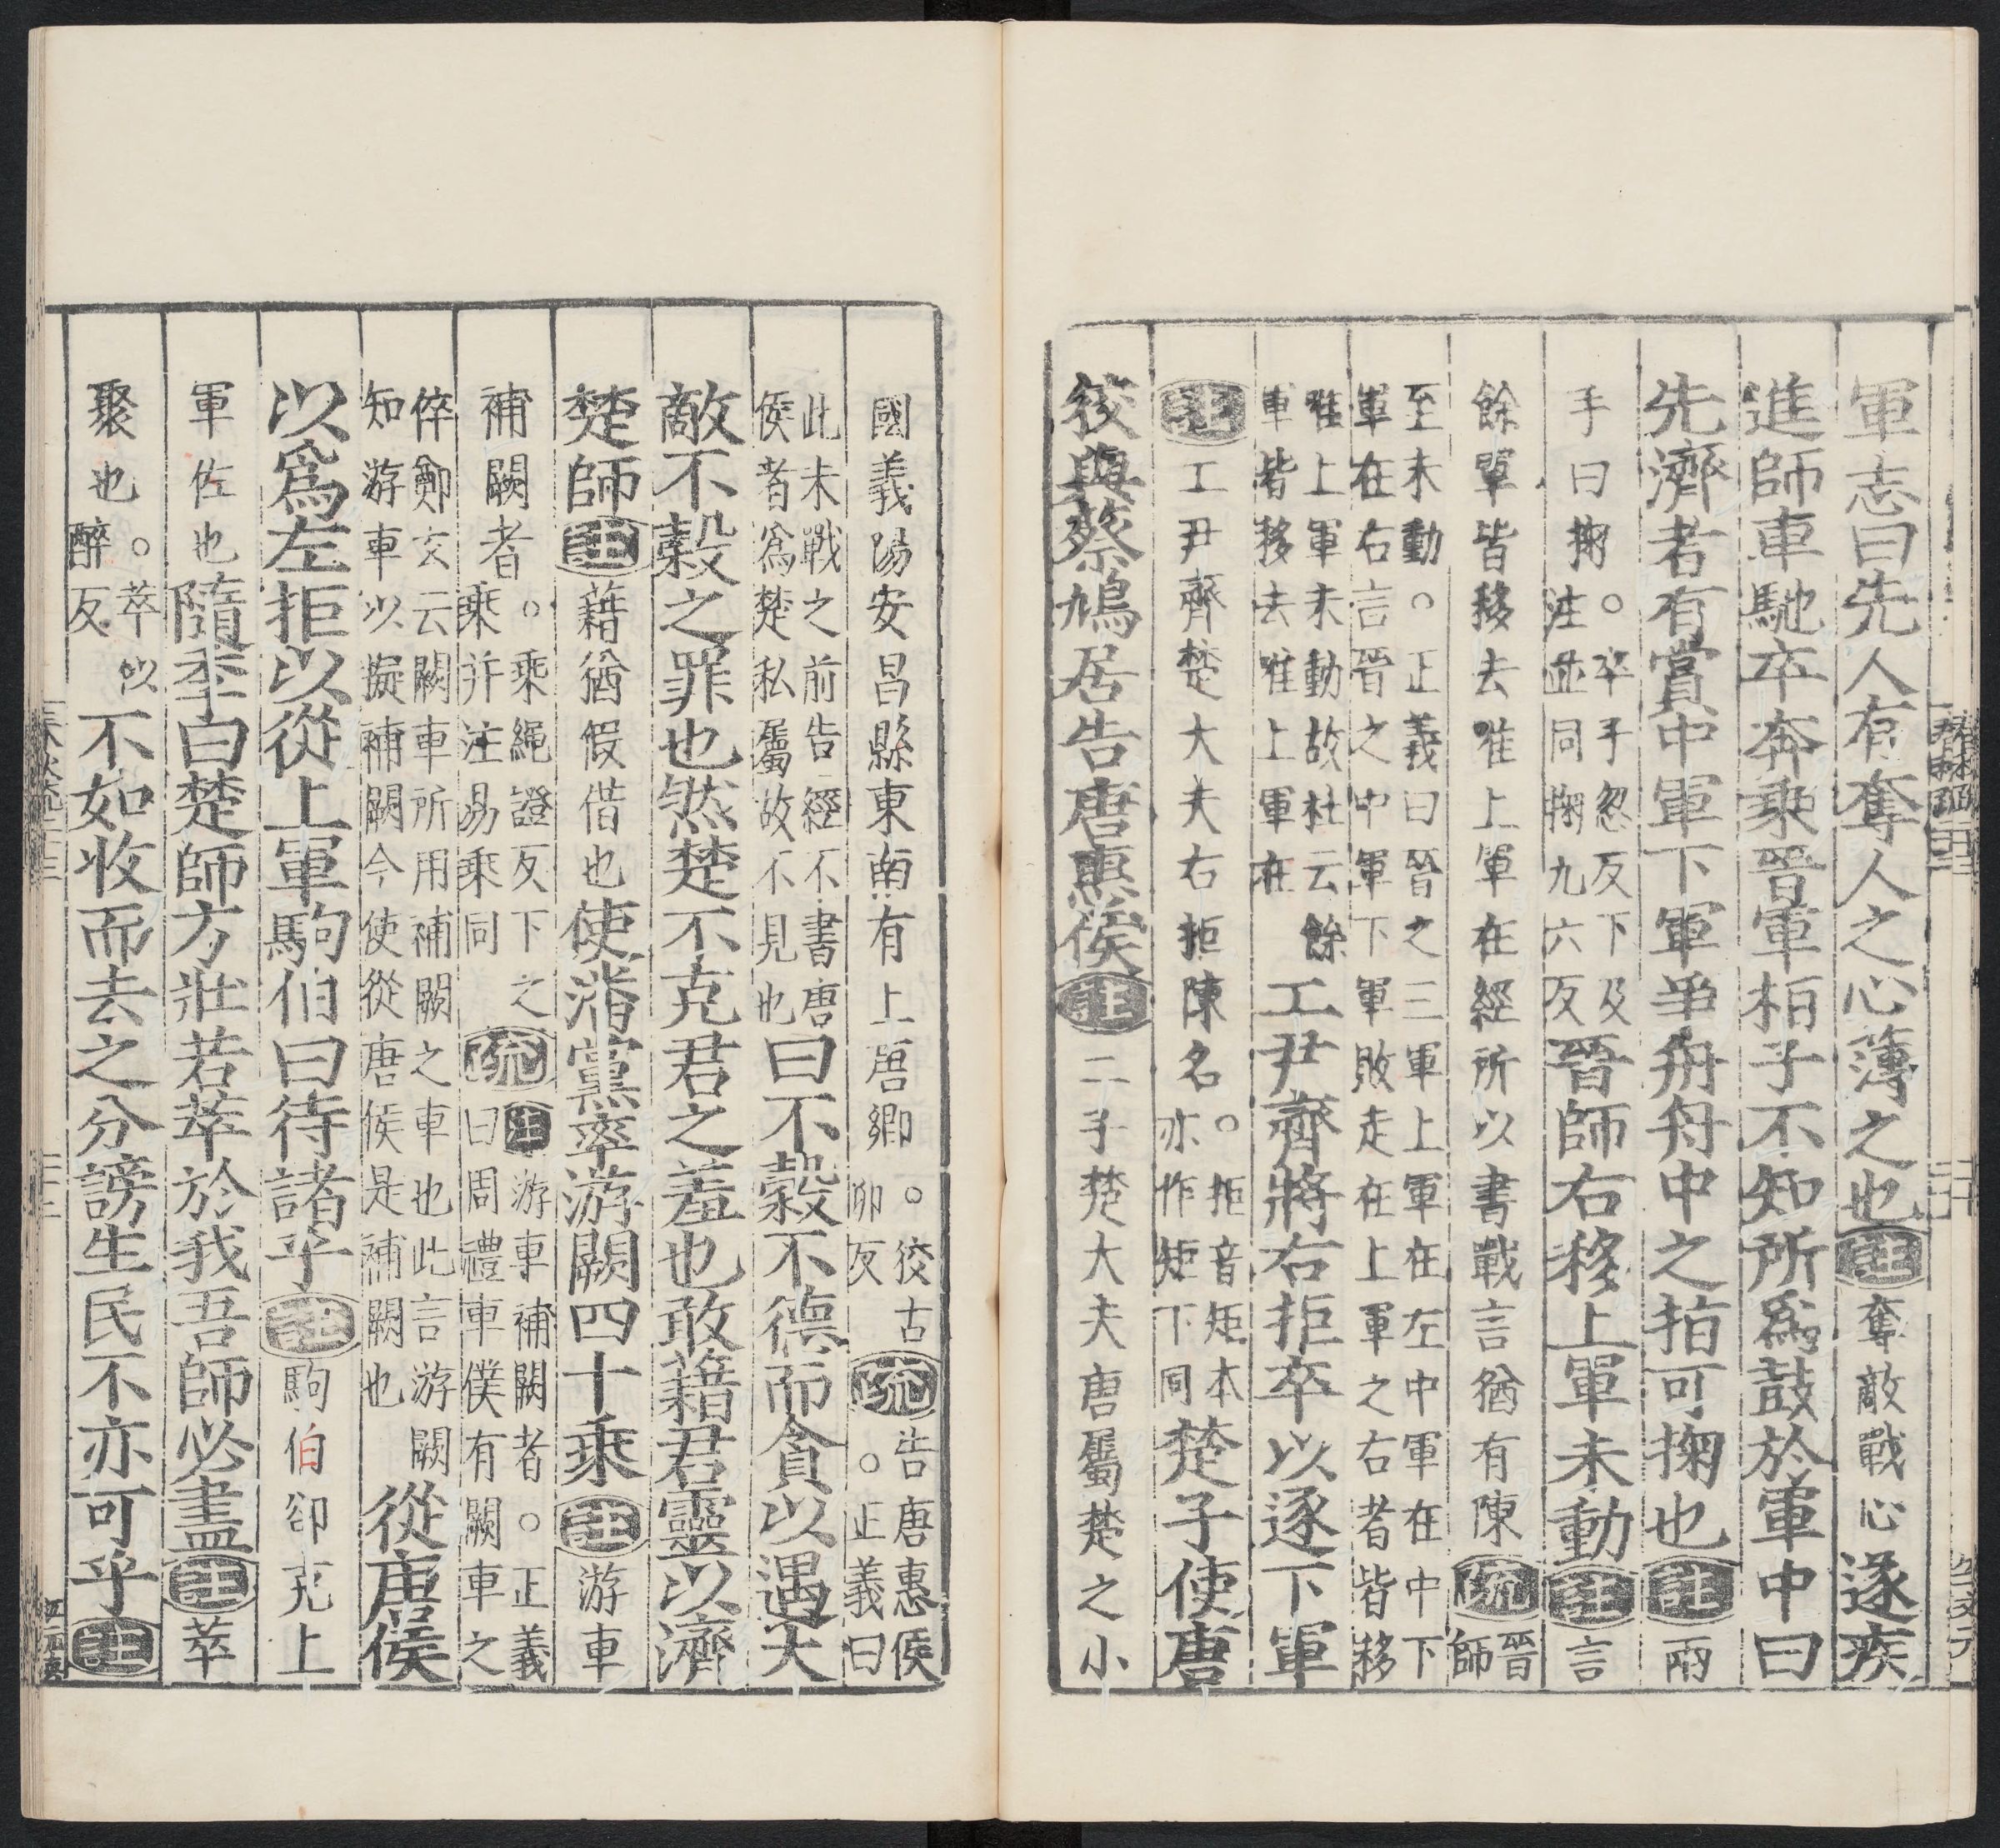 軍志曰先人有奪人之心薄之也注奪敵戰心遂疾
進師車馳卒奔乘晉軍桓子不知所爲鼓於軍中曰
先濟者有賞中軍下軍爭舟舟中之指可掬也注兩
手曰掬。卒子忽反下及注並同掬九六反晉師右移上軍未動注言
餘軍皆移去唯上軍在經所以書戰言猶有陳疏晉師
至未動。正義曰晉之三軍上軍在左中軍在中下軍在右言晉之中軍下軍敗走在上軍之右者皆移
唯上軍未動故杜云餘軍皆移去唯上軍在工尹齊將右拒卒以逐下軍
注工尹齊楚大夫右拒陳名。拒音矩本亦作矩下同楚子使唐
狡與蔡鳩居告唐惠侯注二子楚大夫唐屬楚之小
國義陽安昌縣東南有上唐鄉。狡古卯反疏告唐惠侯。正義曰
此未戰之前告經不書唐侯者爲楚私屬故不見也曰不穀不德而貪以遇大
敵不穀之罪也然楚不克君之羞也敢藉君靈以濟
楚師注藉猶假借也使潘黨率游闕四十乘注游車
補闕者。乘繩證反下之乘并注易乘同疏注游車補闕者。正義曰周禮車僕有闕車之
倅鄭玄云闕車所用補闕之車也此言游闕知游車以擬補闕今使從唐侯是補闕也從唐侯
以爲左拒以從上軍駒伯曰待諸乎注駒伯郤克上
軍佐也隨季曰楚師方壯若萃於我吾師必盡注萃
聚也。萃似醉反不如收而去之分謗生民不亦可乎注